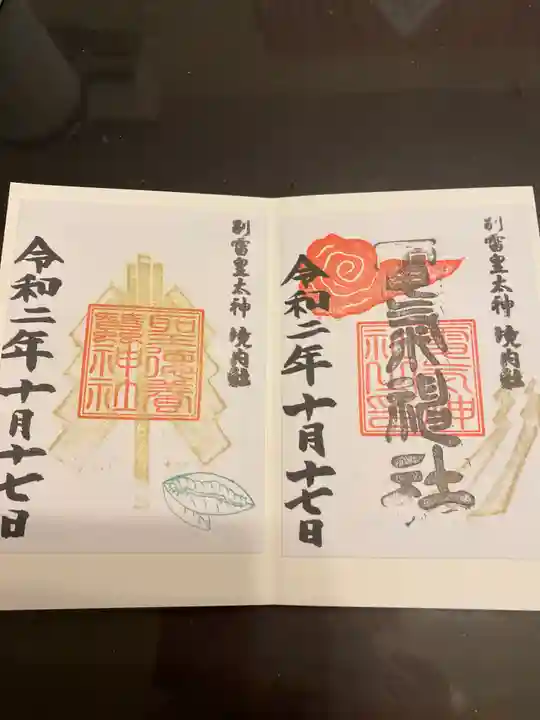 別雷皇太神 境内社
電気神社
電気神
社之印
令和二年十月十七日
別雷皇太神 境内社
聖徳養
蠶神社
令和二年十月十七日